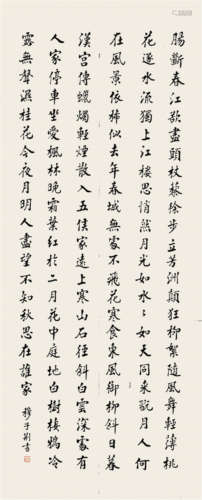 腸斷春江欲盡頭杖藜徐步立芳洲顛狂柳絮隨風舞輕薄桃
花逐水流獨上江樓思悄然月光如水〻如天同來翫月人何
在風景依稀似去年春城無處不飛花寒食東風御柳斜日暮
漢宮傳蠟燭輕煙散入五侯家遠上寒山石徑斜白雲深處有
人家停車坐愛楓林晚霜葉紅於二月花中庭地白樹棲鴉冷
露無聲濕桂花今夜月明人盡望不知秋思在誰家
穆子荊書